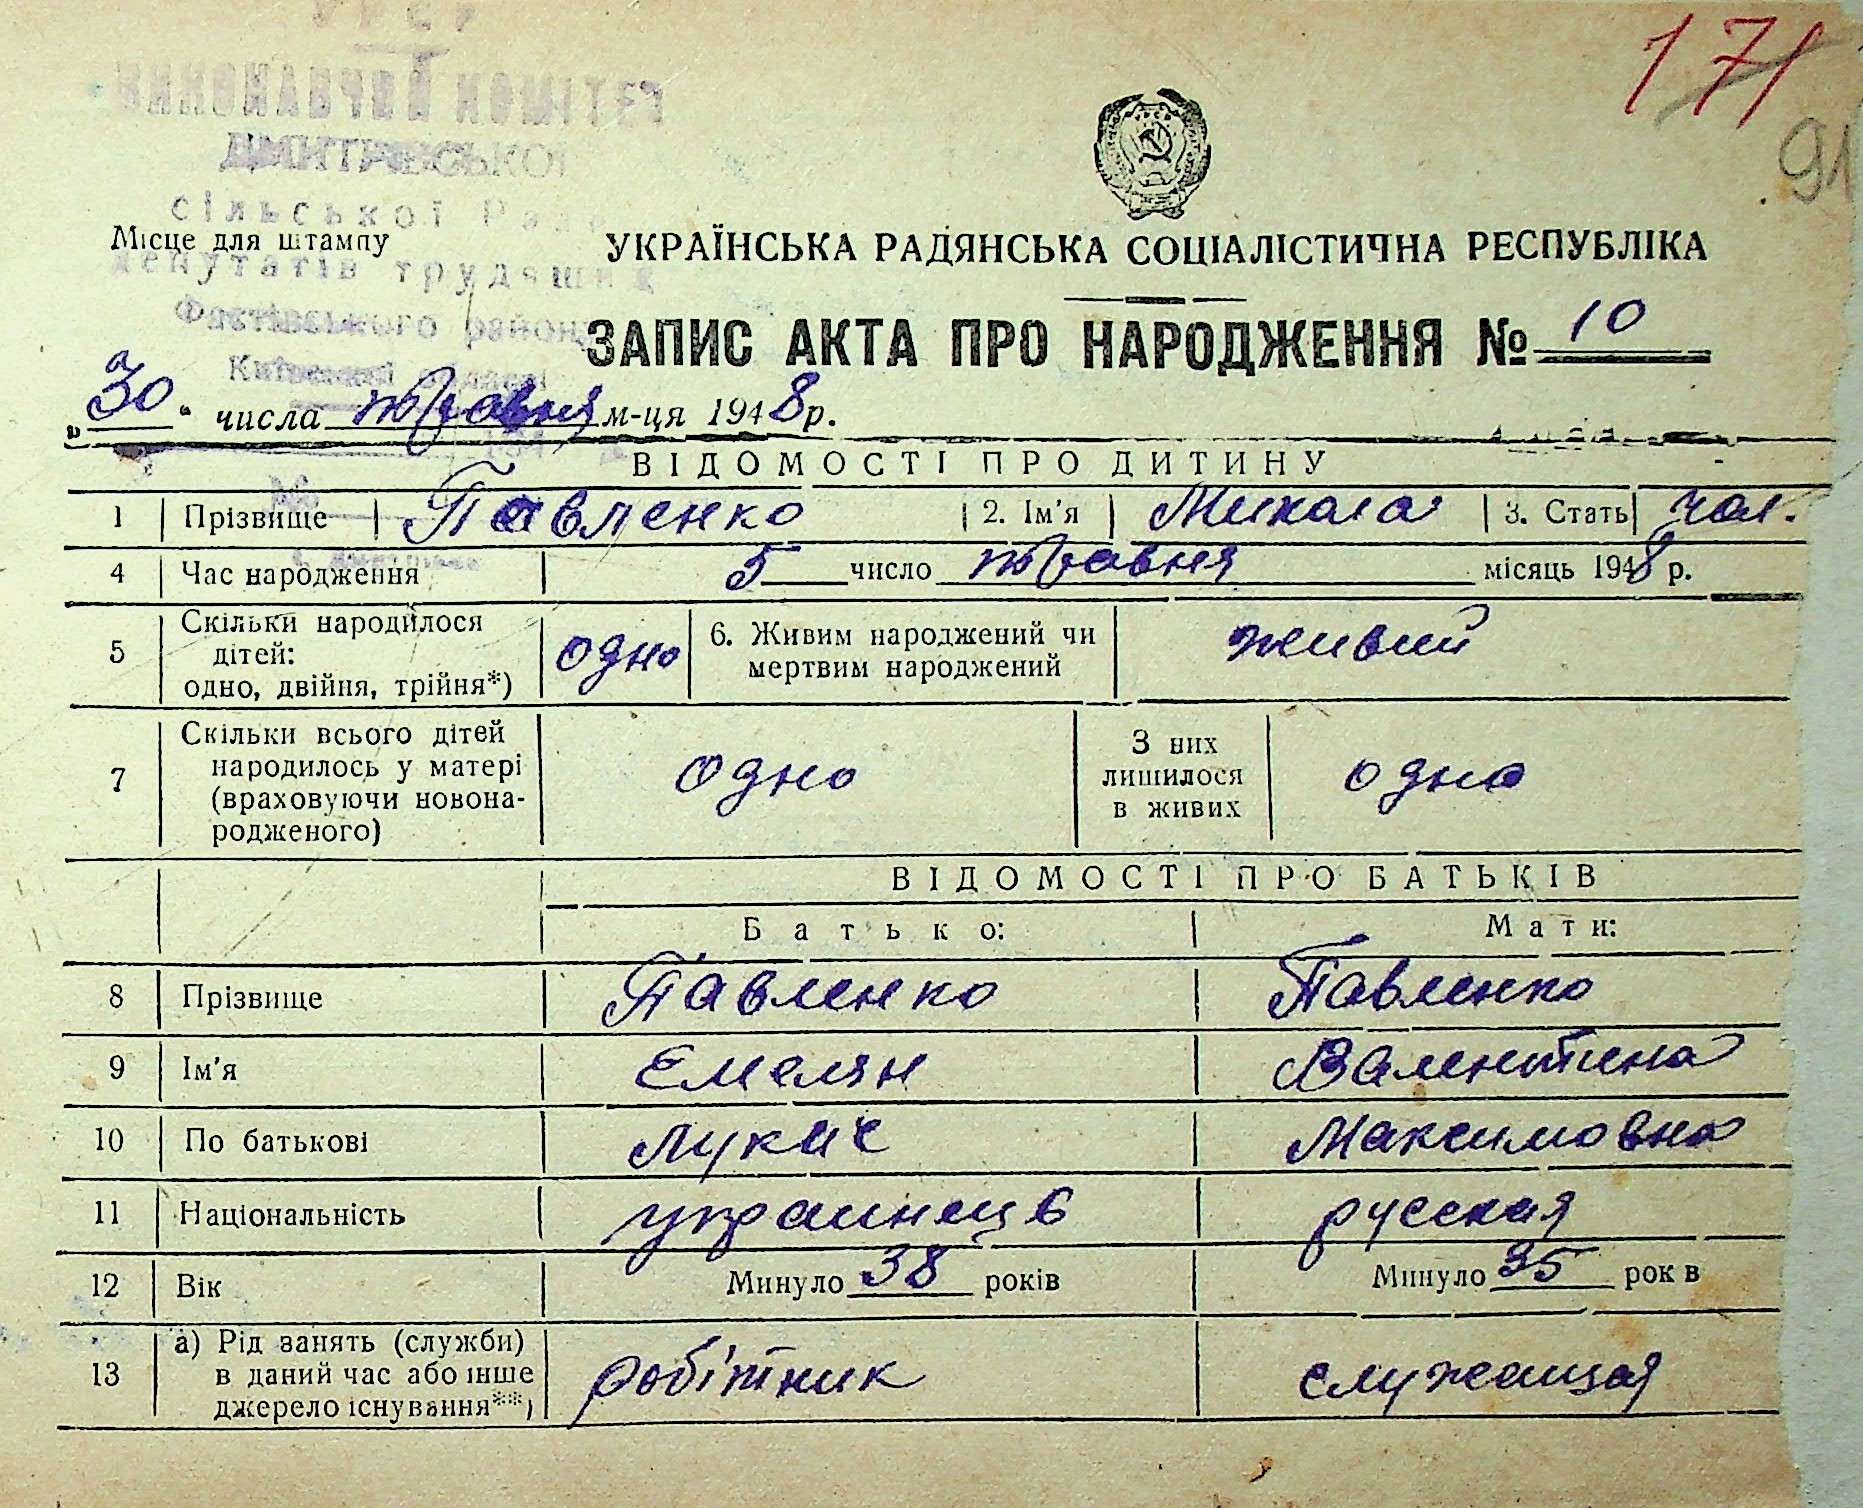 УРСР
ВИКОНАВЧИЙ КОМІТЕТ
ДМИТРІВСЬКОЇ
сільської Ради
депутатів трудящих
Фастівського району
Київської області
194
№
с. Дмитрівка
171
91
Місце для штампу
УКРАЇНСЬКА РАДЯНСЬКА СОЦІАЛІСТИЧНА РЕСПУБЛІКА
ЗАПИС АКТА ПРО НАРОДЖЕННЯ № 10
„30“ числа травня м-ця 1948 р.
ВІДОМОСТІ ПРО ДИТИНУ
1 Прізвище Павленко 2. Ім'я Микола 3. Стать чол.
4 Час народження 5 число травня місяць 1948 р.
5 Скільки народилося дітей: одно, двійня, трійня*) одно 6. Живим народжений чи мертвим народжений живий
7 Скільки всього дітей народилось у матері (враховуючи новонародженого) одно З них лишилося в живих одно
ВІДОМОСТІ ПРО БАТЬКІВ
Батько: Мати:
8 Прізвище Павленко Павленко
9 Ім'я Емелян Валентина
10 По батькові Лукич Максимовна
11 Національність украинець русская
12 Вік Минуло 38 років Минуло 35 рок в
13 а) Рід занять (служби) в даний час або інше джерело існування**) робітник служащая